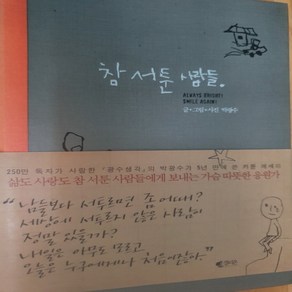 참 서툰 사람들.
ALWAYS BRIGHT!
SMILE AGAIN!
글·그림·사진 박광수
250만 독자가 사랑한 『광수생각』의 박광수가
삶도 사랑도 참 서툰 사람들에게 보내는 가슴 따뜻한 응원가
"남들보다 서투르면 좀 어때?
세상에 서투르지 않은 사람이
정말 있을까?
내일은 아무도 모르고
오늘은 누구에게나 처음이잖아."